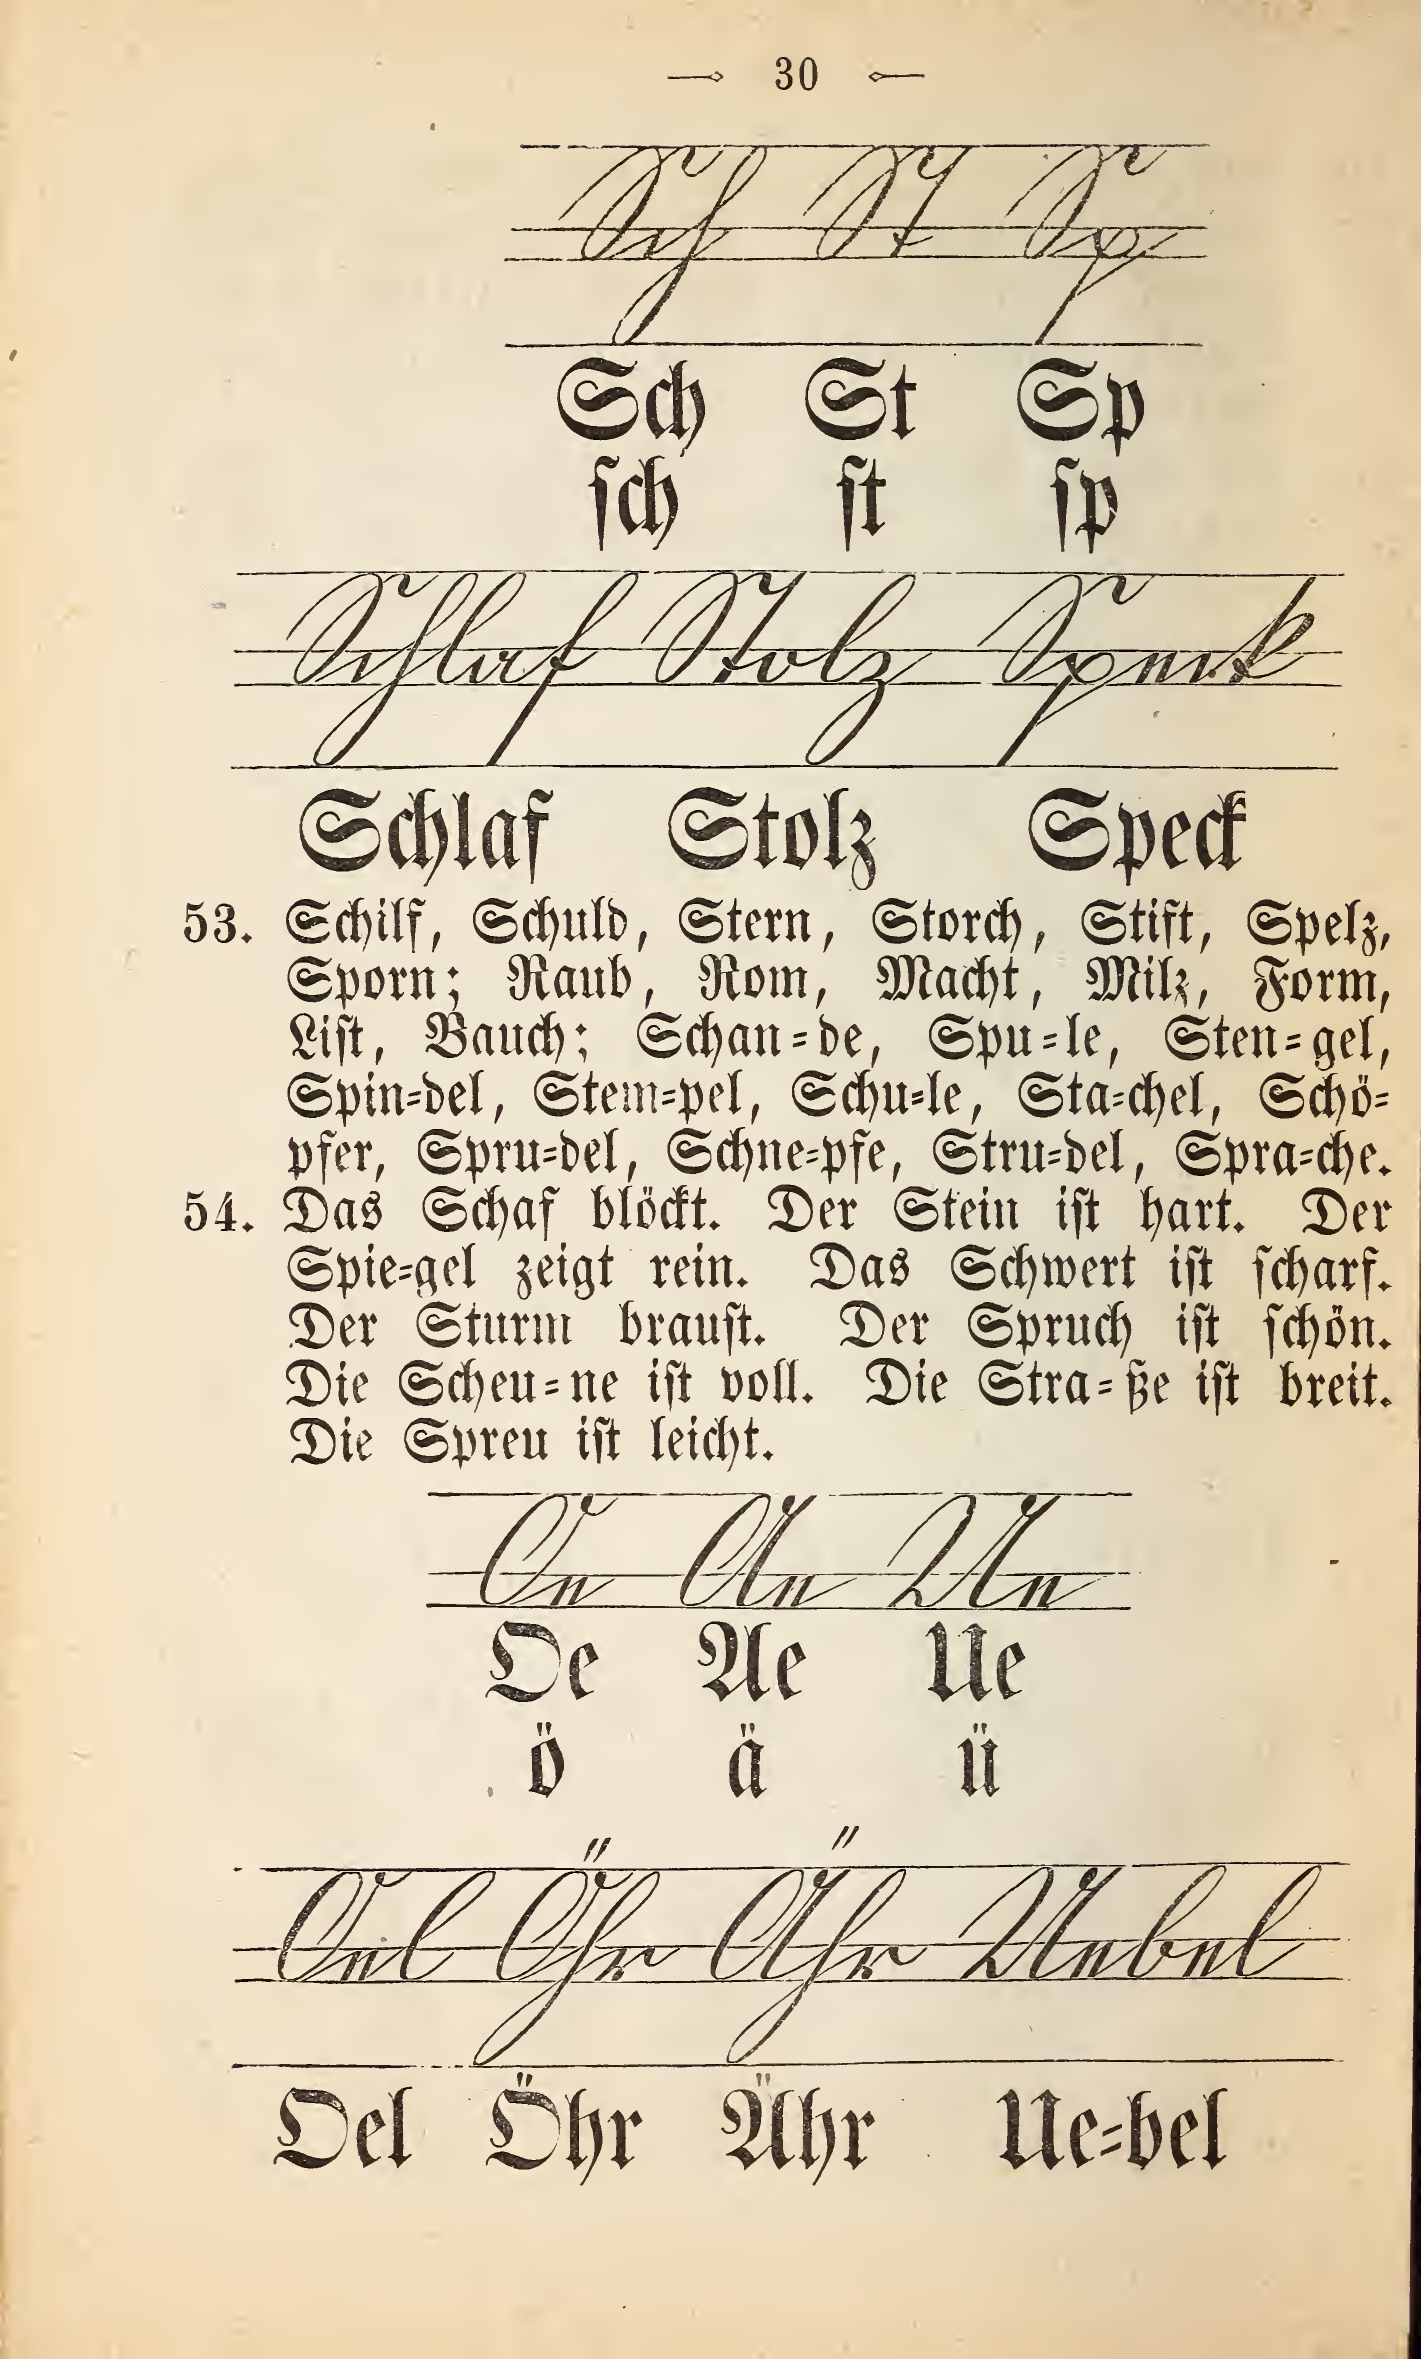 30
Sch St Sp
Sch St Sp
ſch ſt ſp
Schlaf Stolz Speck
Schlaf Stolz Speck
53. Schilf, Schuld, Stern, Storch, Stift, Spelz,
Sporn; Raub, Rom, Macht, Milz, Form,
Liſt, Bauch; Schan=de, Spu=le, Sten=gel,
Spin=del, Stem=pel, Schu=le, Sta=chel, Schö=
pfer, Spru=del, Schne=pfe, Stru=del, Spra=che.
54. Das Schaf blöckt. Der Stein iſt hart. Der
Spie=gel zeigt rein. Das Schwert iſt ſcharf.
Der Sturm brauſt. Der Spruch iſt ſchön.
Die Scheu=ne iſt voll. Die Stra=ße iſt breit.
Die Spreu iſt leicht.
Oe Ae Ue
Oe Ae Ue
ö ä ü
Oel Öhr Ähr Uebel
Oel Öhr Ähr Ue=bel